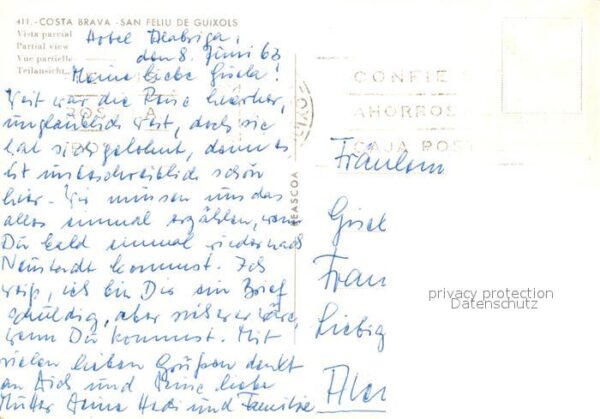 411.-COSTA BRAVA-SAN FELIU DE GUIXOLS
Vista parcial
Partial view
Vue partielle
Teilansicht
Hotel
den 8. Juni 63
Meine liebe Gisela!
Weit war die Reise hierher,
unglaublich weit, doch sie
hat sich gelohnt, denn es
ist unbeschreiblich schön
hier. Wir müssen uns das
alles einmal erzählen, wenn
Du bald einmal wieder nach
Neustadt kommst. Ich
weiß, ich bin Dir ein Brief
schuldig, aber wäre,
wenn Du kommst. Mit
vielen lieben Grüßen denkt
an Dich und Deine liebe
Mutter Deine Hedi und Familie
CONFIE
AHORROS
CAJA POST
REASCOA
Fräulein
Gisel
Frau
Liebig
privacy protection
Datenschutz